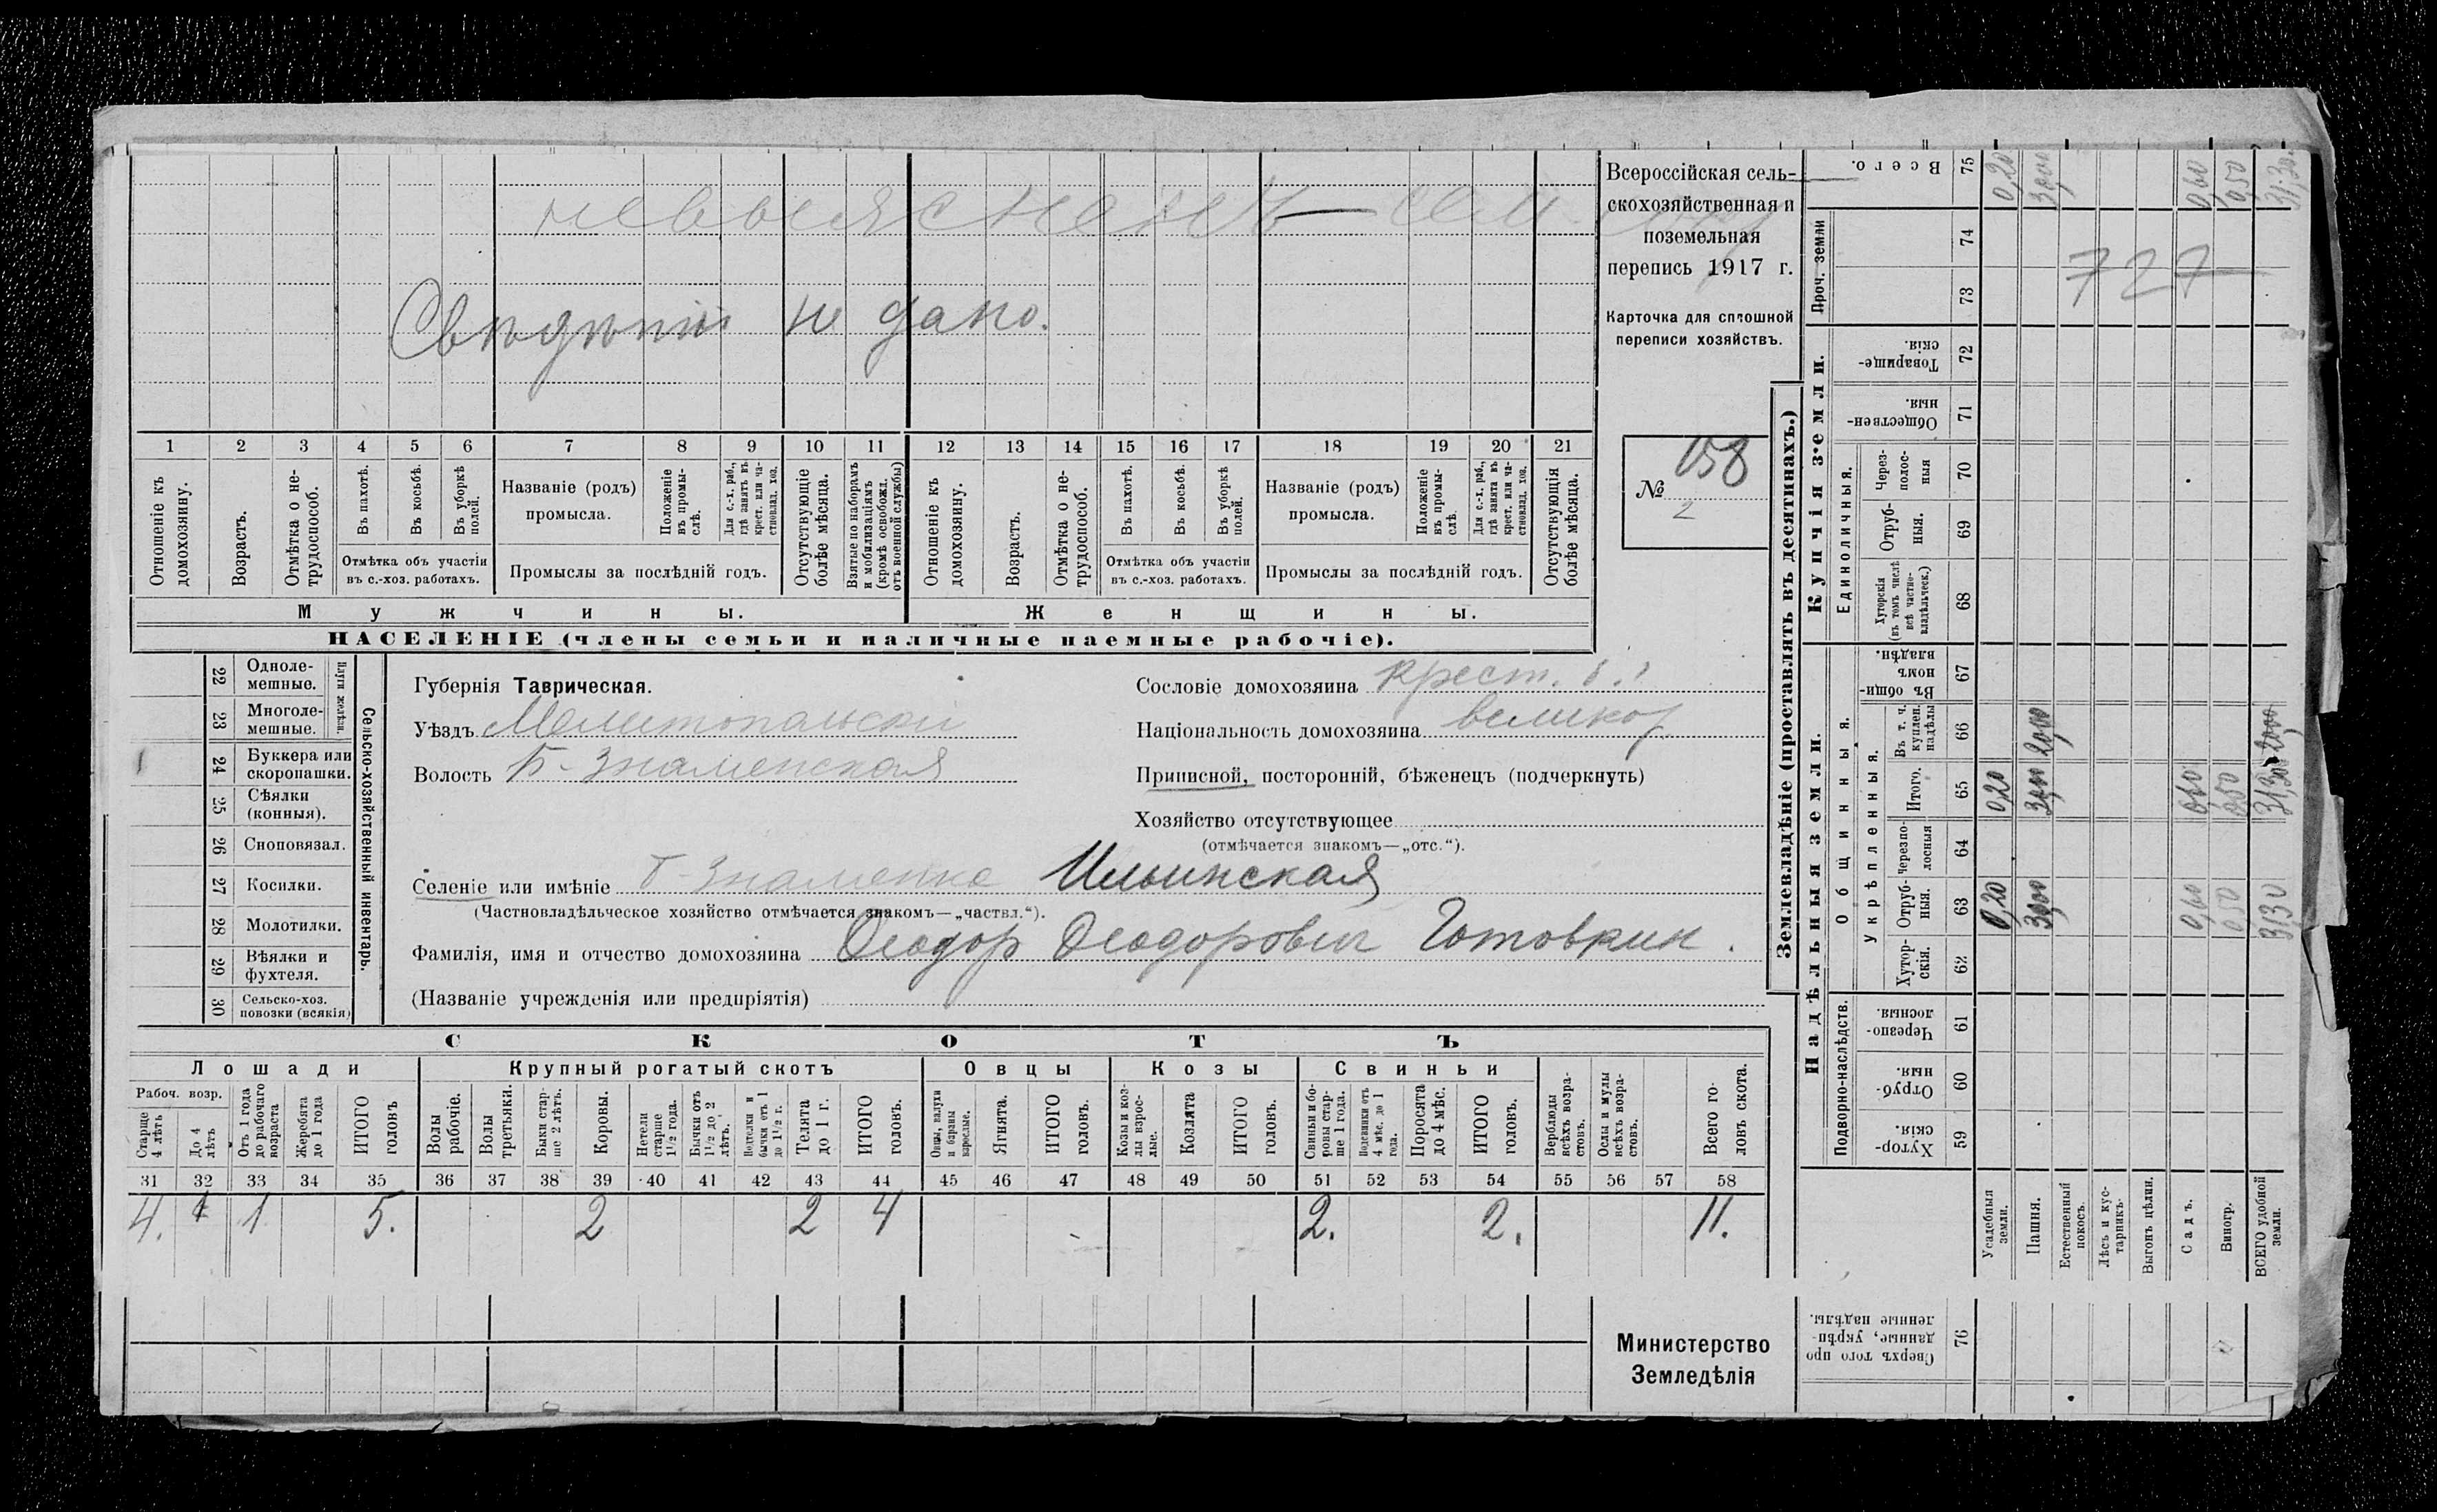 Сведений не дано.
1 2 3 4 5 6 7 8 9 10 11 12 13 14 15 16 17 18 19 20 21
Отношеніе къ домохозяину.
Возрастъ.
Отмѣтка о не-трудоспособ.
Въ пахотѣ.
Въ косьбѣ.
Въ уборкѣ полей.
Отмѣтка объ участіи
въ с.-хоз. работахъ.
Названіе (родъ)
промысла.
Положеніе въ промы-слѣ.
Для с.-х. раб., гдѣ занятъ въ крест. или ча-стновлад. хоз.
Промыслы за послѣдній годъ.
Отсутствующіе болѣе мѣсяца.
Взятые по наборамъ и мобилизаціямъ (кромѣ освобожд. отъ военной службы)
Отношеніе къ домохозяину.
Возрастъ.
Отмѣтка о не-трудоспособ.
Въ пахотѣ.
Въ косьбѣ.
Въ уборкѣ полей.
Отмѣтка объ участіи
въ с.-хоз. работахъ.
Названіе (родъ)
промысла.
Положеніе въ промы-слѣ.
Для с.-х. раб., гдѣ занята въ крест. или ча-стновлад. хоз.
Промыслы за послѣдній годъ.
Отсутствующія болѣе мѣсяца.
Мужчины.
Женщины.
НАСЕЛЕНІЕ (члены семьи и наличные наемные рабочіе).
Всероссійская сель-
скохозяйственная и
поземельная
перепись 1917 г.
Карточка для сплошной
переписи хозяйствъ.
№ 158
2
22 Одноле-мешные.
23 Многоле-мешные.
Плуги желѣзн.
1 24 Буккера или скоропашки.
25 Сѣялки (конныя).
26 Сноповязал.
27 Косилки.
28 Молотилки.
29 Вѣялки и фухтеля.
30 Сельско-хоз. повозки (всякія)
Сельско-хозяйственный инвентарь.
Губернія Таврическая.
Уѣздъ Мелитопольскій
Волость Б-Знаменская
Сословіе домохозяина крест.
Національность домохозяина великор
Приписной, посторонній, бѣженецъ (подчеркнуть)
Хозяйство отсутствующее
(отмѣчается знакомъ—„отс.“).
Селеніе или имѣніе Б-Знаменка Ильинская
(Частновладѣльческое хозяйство отмѣчается знакомъ—„частвл.“).
Фамилія, имя и отчество домохозяина Феодор Феодорович Готовкин.
(Названіе учрежденія или предпріятія)
СКОТЪ
Лошади
Крупный рогатый скотъ
Овцы
Козы
Свиньи
Рабоч. возр.
Старше 4 лѣтъ
До 4 лѣтъ
Отъ 1 года до рабочаго возраста
Жеребята до 1 года
ИТОГО головъ
Волы рабочіе.
Волы третьяки.
Быки стар-ше 2 лѣтъ.
Коровы.
Нетели старше 1½ года.
Бычки отъ 1½ до 2 лѣтъ.
бычки отъ 1 до 1½ г.
Телята до 1 г.
ИТОГО головъ.
Овцы, валухи и бараны взрослые.
Ягнята.
ИТОГО головъ.
Козы и коз-лы взрос-лые.
Козлята
ИТОГО головъ.
Свиньи и бо-ровы стар-ше 1 года.
Подсвинки отъ 4 мѣс. до 1 года.
Поросята до 4 мѣс.
ИТОГО головъ.
Верблюды всѣхъ возра-стовъ.
Ослы и мулы всѣхъ возра-стовъ.
Всего го-ловъ скота.
31 32 33 34 35 36 37 38 39 40 41 42 43 44 45 46 47 48 49 50 51 52 53 54 55 56 57 58
4. 1 5. 2 2 4 2. 2. 11.
Министерство
Земледѣлія
Землевладѣніе (проставлять въ десятинахъ.)
Надѣльныя земли.
Купчія земли.
Проч. земли
Подворно-наслѣдств.
Общинныя.
Укрѣпленныя.
Единоличныя.
Всего. 75
74
73
Товарище-скія. 72
Обществен-ныя. 71
Через-полос-ныя 70
Отруб-ныя. 69
Хуторскія (въ томъ числѣ всѣ частно-владѣльческ.) 68
Въ общин-номъ владѣн. 67
Въ т. ч. куплен. надѣлы 66
Итого. 65
Черезпо-лосныя 64
Отруб-ныя. 63
Хутор-скія. 62
Черезпо-лосныя. 61
Отруб-ныя. 60
Хутор-скія. 59
Усадебныя земли.
Пашня.
Естественный покосъ.
Лѣсъ и кус-тарникъ.
Выгонъ цѣлин.
Садъ.
Виногр.
ВСЕГО удобной земли.
Сверхъ того про-данные, укрѣп-ленные надѣлы. 76
727
0,20 30,00 0,60 0,50 31,30
20,00 20,00
0,20 30,00 0,60 0,50 31,30
0,20 30,00 0,60 0,50 31,30